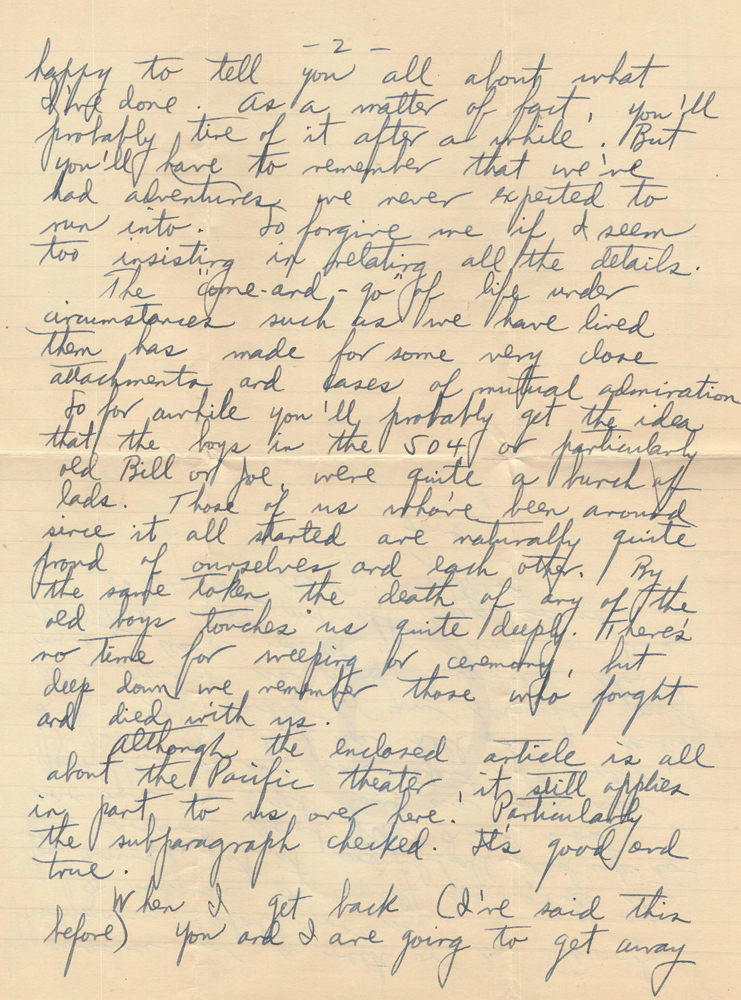 - 2 -
happy to tell you all about what
I've done. As a matter of fact, you'll
probably tire of it after a while. But
you'll have to remember that we've
had adventures we never expected to
run into. So forgive me if I seem
too insisting in relating all the details.
The "come-and-go" of life under
circumstances such as we have lived
them has made for some very close
attachments and cases of mutual admiration
So for awhile you'll probably get the idea
that the boys in the 504 or particularly
old Bill or Joe, were quite a bunch of
lads. Those of us who've been around
since it all started are naturally quite
proud of ourselves and each other. By
the same token the death of any of the
old boys touches us quite deeply. There's
no time for weeping or ceremony, but
deep down we remember those who fought
and died with us.
Although the enclosed article is all
about the Pacific theater, it still applies
in part to us over here. Particularly
the subparagraph checked. It's good and
true.
When I get back (I've said this
before) you and I are going to get away